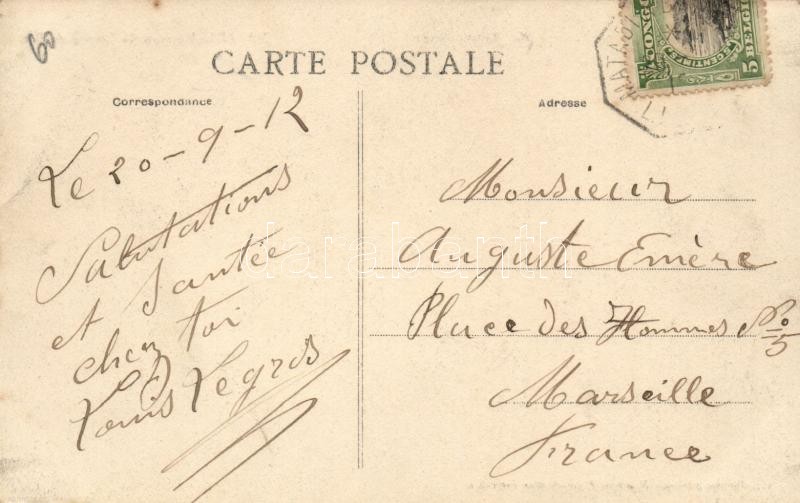 60
CARTE POSTALE
Correspondance
Adresse
CONGO
BELGE
5 CENTIMES 5
MATADI
Le 20-9-12
Salutations
et Santée
chez toi
Louis Legros
Monsieur
Auguste Emère
Place des Hommes No 5
Marseille
France
darabanth